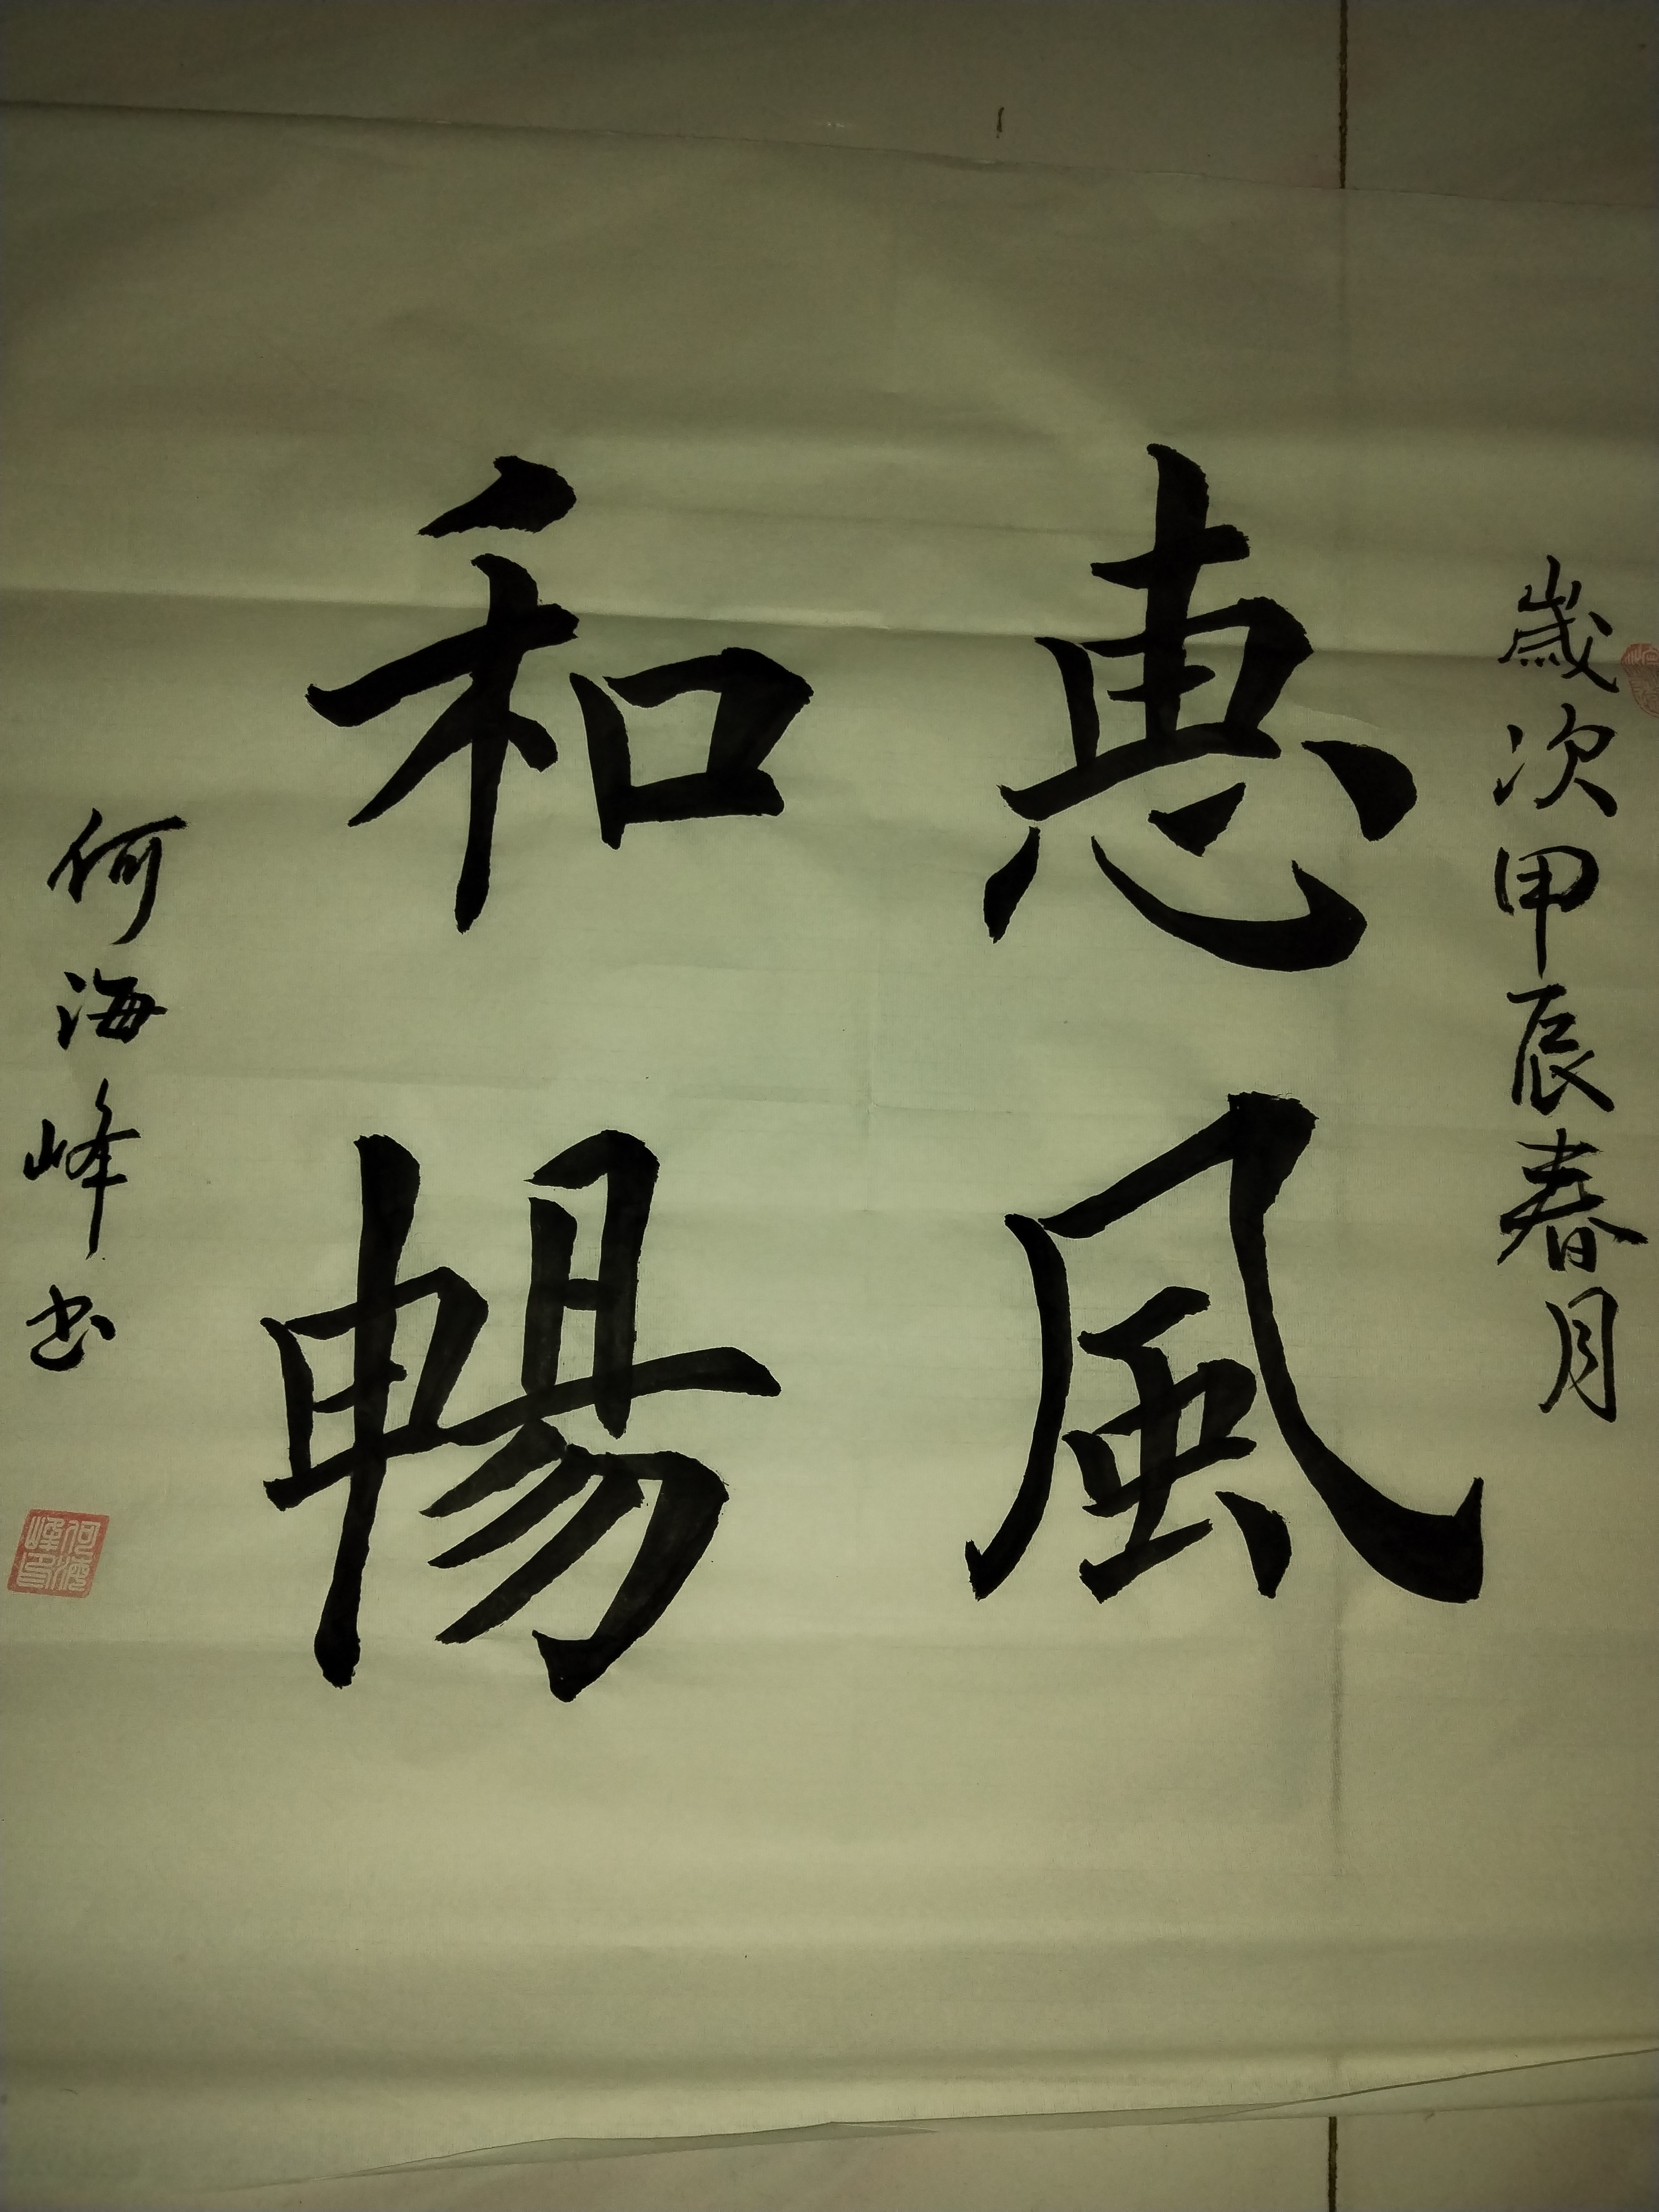 歲次甲辰春月
惠風
和暢
何海峰书
何海峰印